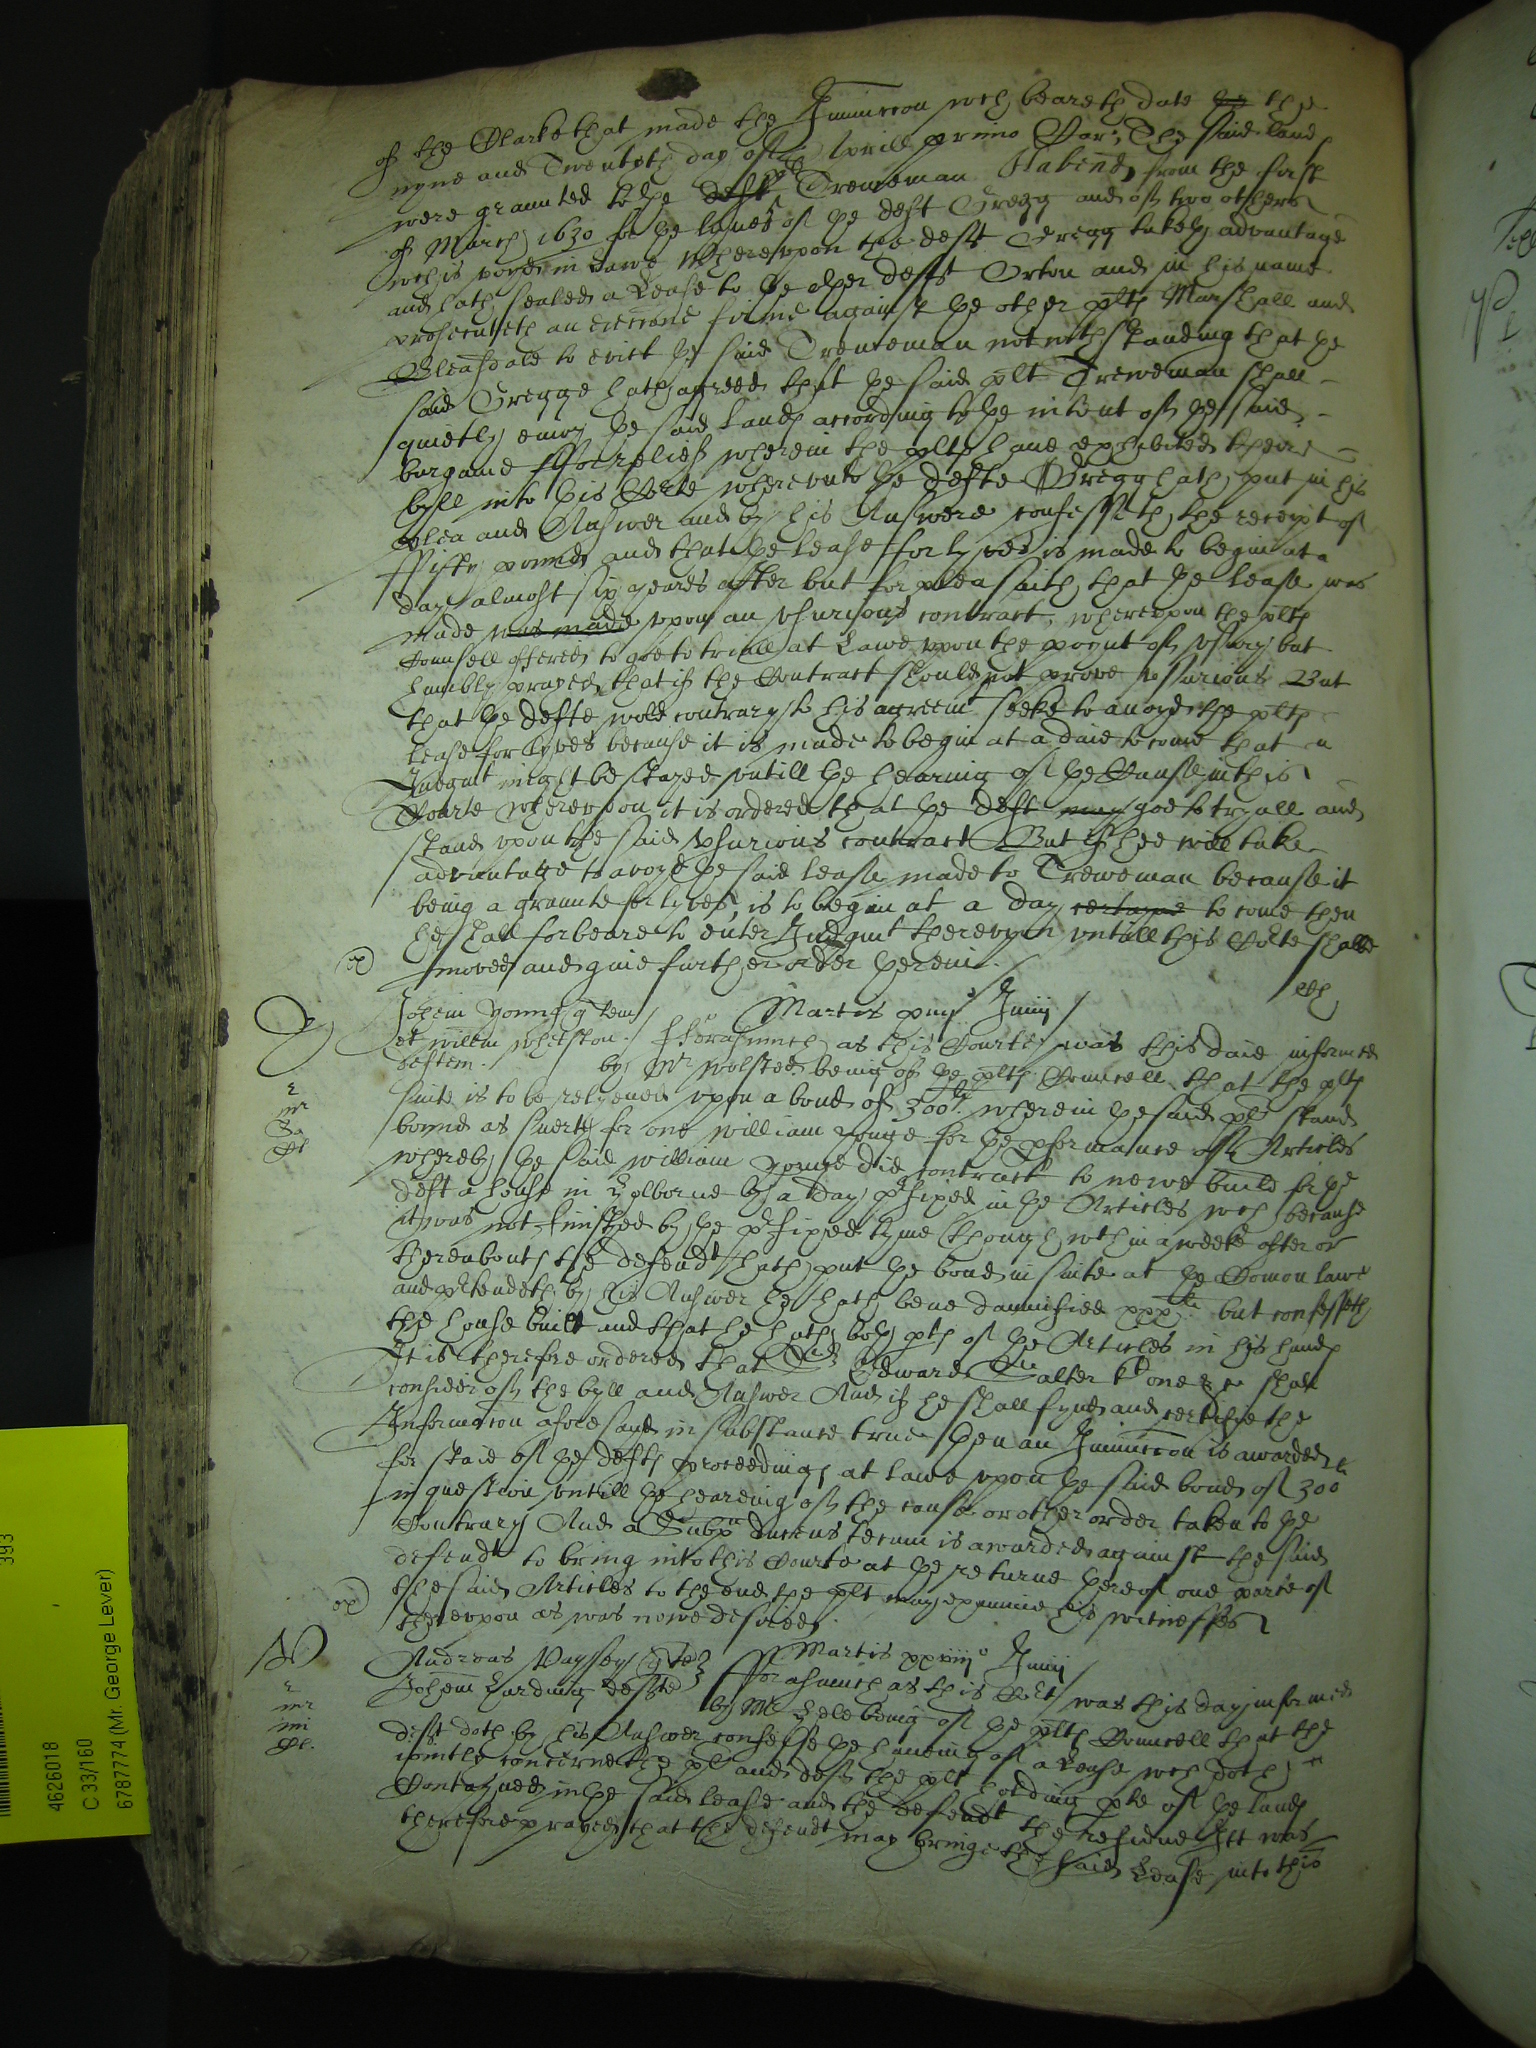 of the Clarke that made the Iniunccon wch beareth date the
nyne and Twenteth day of Aprill primo Car: The said land
were graunted to he deft plt Treweman Habend from the first
of March 1630 for he lives of he deft Gregg and of two others
wch is voyd in Lawe Wherevpon the deft Gregg taketh advantage
and hath sealed a Lease to he other defts Orton and in his name
prosecuteth an eieccone firme against he other plts Marshall and
Bleasdale to evict he said Treweman notwithstanding that he
said Gregge hath agreed that he said plt Treweman shall
quietly enioy he said lands according to he intent of he said
bargaine ffor releif wherein the plts have exhibited theire
byll into this Corte wherevnto he defte Gregg hath put in his
plea and Answer and by his Answere confesseth the receipt of
ffifty pounds and that he lease for lyves is made to begin at a
day almost six yeares after but for plea saith that he lease was
made was made vpon an vsurious contract, wherevpon the plts
Counsell offered to goe to triall at Lawe vpon the poynt of vsury but
humbly prayed that if the Contract should not prove vsurious But
that he defte wold contrary to his agreemt seeke to avoyd the plts
lease for lyves because it is made to begin at a daie to come that
Iudgmt might be stayed vntill he hearing of he Cause in this
Courte wherevpon it is ordered that he deft may goe to tryall and
stand vpon the said vsurious contract But if hee will take
advantage to avoyd he said lease made to Treweman because it
being a graunte for lyves, is to begin at a day certayne to come then
he shall forbeare to enter Iudgmt therevpon vntill this Corte shalbe
moved and give further order herein.
Johem Young quer Martis Junij
et willm whetston deftem. fforasmuch as this Courte was this daie informed
by Mr wolsted being of he plts Councell that the plts
suite is to be releived vpon a bond of 300li wherein he said plt stands
bound as suerty for one william yonge for he pformance of Articles
whereby he said william yonge did contract to newe build for he
deft a house in Holborne by a day prfixed in he Articles wch because
it was not finished by he prfixed tyme though wthin a weeke after or
thereabouts the defendt hath put he bond in suite at he Comon lawe
and prtendeth by his Answer he hath bene damnified xxxli but confesseth
the house built and that he hath both pts of he Articles in his hands
It is therefore ordered that Sr Edward Salter kt one &c shall
consider of the byll and Answer And if he shall fynd and certifie the
Informacon aforesayd in substance true then an Iniunccon is awarded
for staie of he defts proceedings at lawe vpon he said bond of 300
in question vntill he hearing of the cause or other order taken to he
Contrary And a Subpa ducens tecum is awarded against the said
defendt to bring into this Courte at he returne hereof one parte of
the said Articles to the end the plt may examine his witnesses
therevpon as was nowe desired.
Andreas Vaysey quer Martis xxviijo Junij
Johem Harding defte fforasmuch as this Corte was this day informed
by Mr Hele being of he plts Councell that the
deft doth by his Answer confesse he having of a Lease wch doth
iointly concerne the plt and deft the plt holding pte of he lands
Contayned in he said lease and the defendt the residue Itt was
therefore prayed that the defendt may bringe the said Lease into this
393
4626018
C 33/160
6787774 (Mr. George Lever)